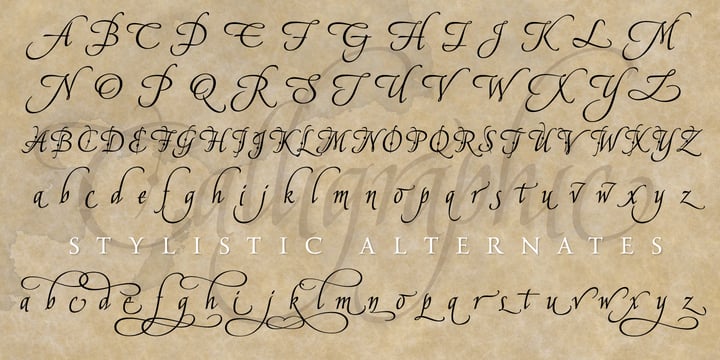 A B C D E F G H I J K L M
N O P Q R S T U V W X Y Z
A B C D E F G H I J K L M N O P Q R S T U V W X Y Z
a b c d e f g h i j k l m n o p q r s t u v w x y z
Calligraphic
STYLISTIC ALTERNATES
a b c d e f g h i j k l m n o p q r s t u v w x y z